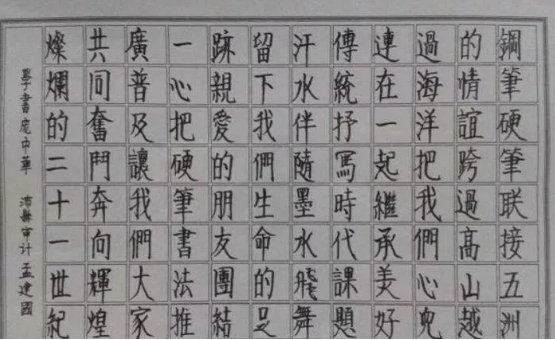 鋼筆硬筆联接五洲
的情誼跨過高山越
過海洋把我們心兒
連在一起繼承美好
傳統抒寫時代課題
汗水伴隨墨水飛舞
留下我們生命的足
跡親愛的朋友團結
一心把硬筆書法推
廣普及讓我們大家
共同奮鬥奔向輝煌
燦爛的二十一世紀
學書庞中華 沛縣审计孟建國